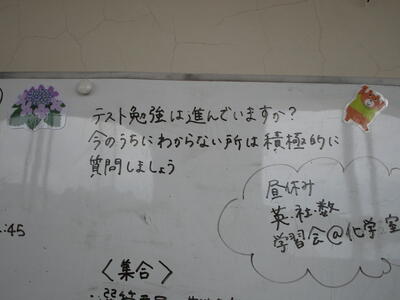 テスト勉強は進んでいますか?
今のうちにわからない所は積極的に
質問しましょう
昼休み
英・社・数
学習会@化学室
:45
〈集合〉